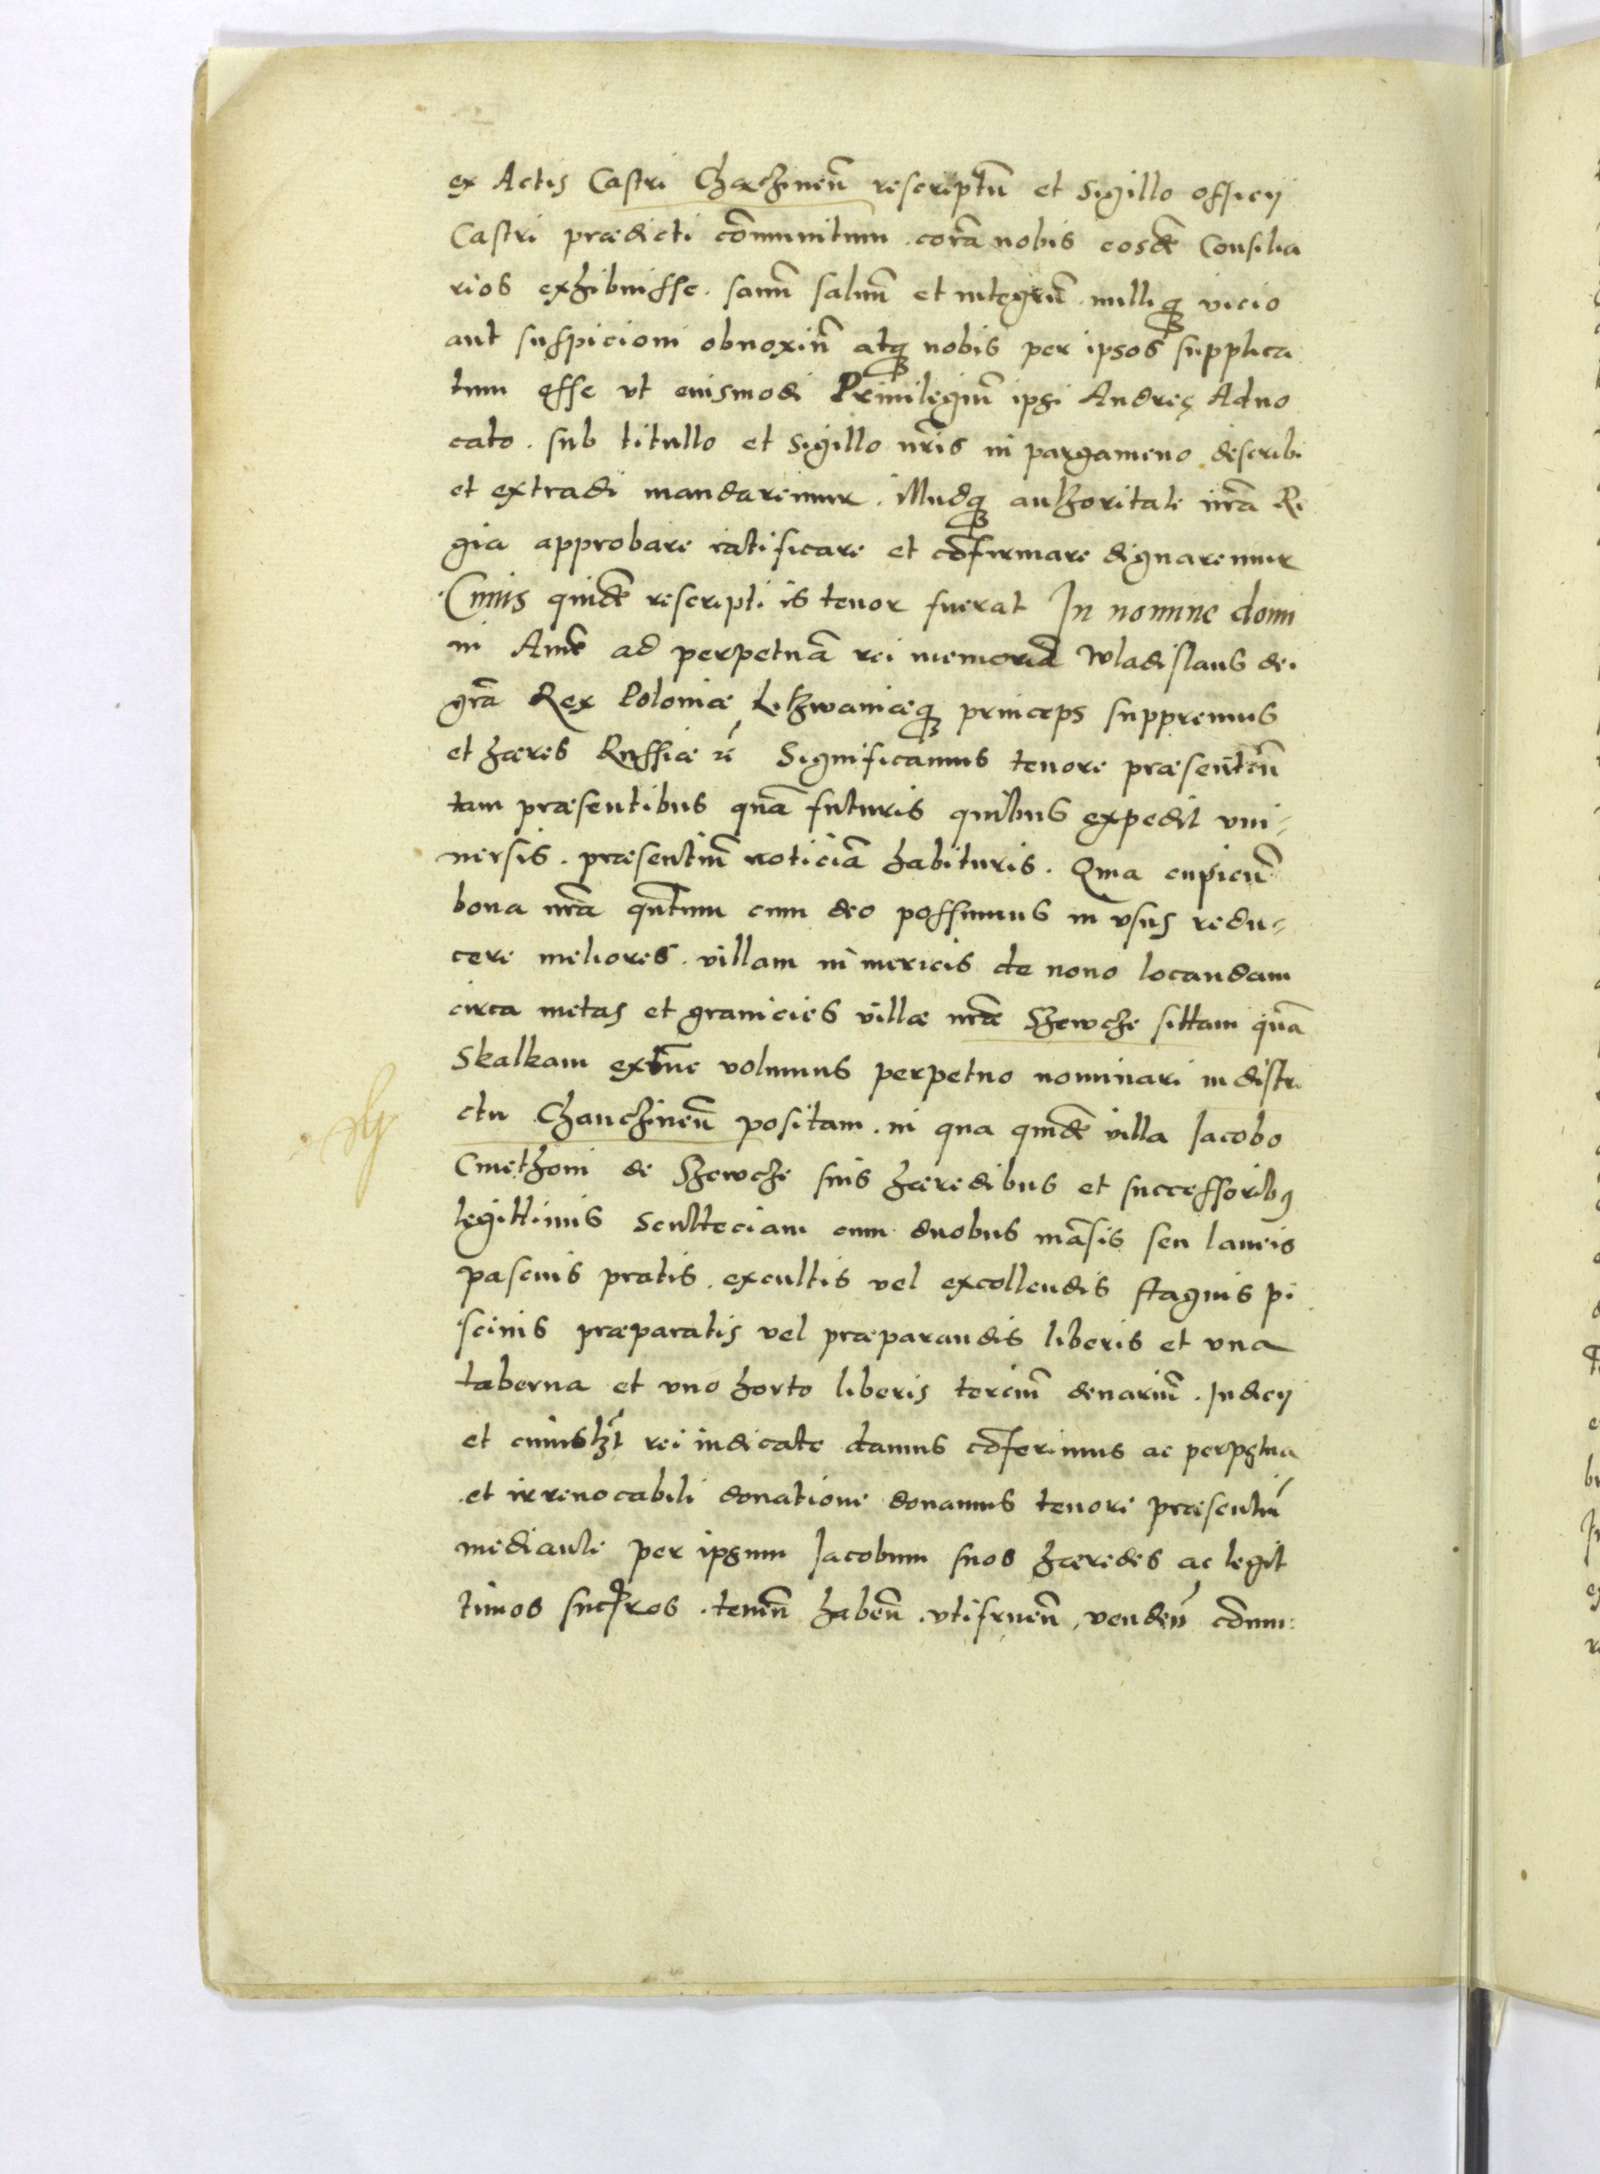 ex Actis Castri Chæchinen̄ rescriptū et Sigillo officij
Castri prædicti cōmunitum . corā nobis eosdē Consilia
rios exhibuisse . sanū saluū et integrū . nulliq̨ vicio
aut suspicioni obnoxiū atq̨ nobis per ipsos supplica
tum esse vt euismodi Priuilegiū ipsi Andreę Aduo
cato . sub titullo et Sigillo nr̄is in pargameno describi
et extradi mandaremur . illudq̨ authoritate nr̄a Re
gia approbare ratificare et cōfirmare dignaremur
Cuius quidē rescripti is tenor fuerat In nomine domi
ni Amē ad perpetuā rei memoriā Wladislaus dei
gr̄a Rex Poloniæ Lethwaniæq̨ princeps suppremus
et hæres Russiæ rē Significamus tenore præsentiū
tam præsentibus quā futuris quibus expedit vni-
uersis . præsentiū noticiā habituris . Quia cupieū
bona nr̄a quātum cum deo possumus in vsus redu-
cere meliores . villam in mericis de nouo locandam
circa metas et granicies villæ nr̄æ Shewche sittam quā
Skalkam extūc volumus perpetuo nominari in distri
ctu Chanchinen̄ positam . in qua quidē villa Jacobo
Cmethoni de Shewche suis hæredibus et successoribꝰ
legittimis Sculteciam cum duobus māsis seu laneis
pascuis pratis . excultis vel excollendis stagnis pi
scinis præparatis vel præparandis liberis et vna
taberna et vno horto liberis terciū denariū . Judicij
et cuiuslibꝫt rei iudicate damus cōferimus ac perpetua
et irreuocabili donatione donamus tenore præsentiū
mediante per ipsum Jacobum suos hæredes ac legit
timos succ̄ros . tenen̄ haben̄ . vtifruen̄ , venden̄ cōmu: